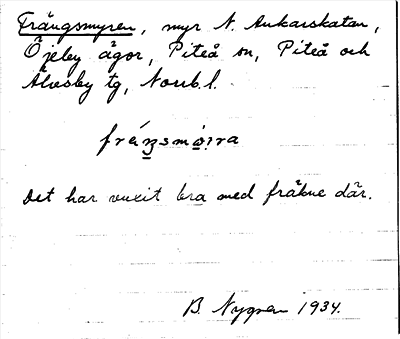 Frängsmyren, myr N. Ankarskatan,
Öjeby ägor, Piteå sn, Piteå och
Älvsby tg, Norrb. l.
Det har vuxit bra med fräkne där.
B. Nygren 1934.